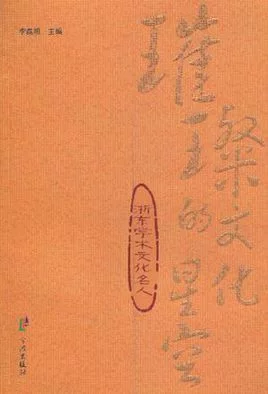 主编
璀璨文化
的星空
浙东学术文化名人
宁波出版社